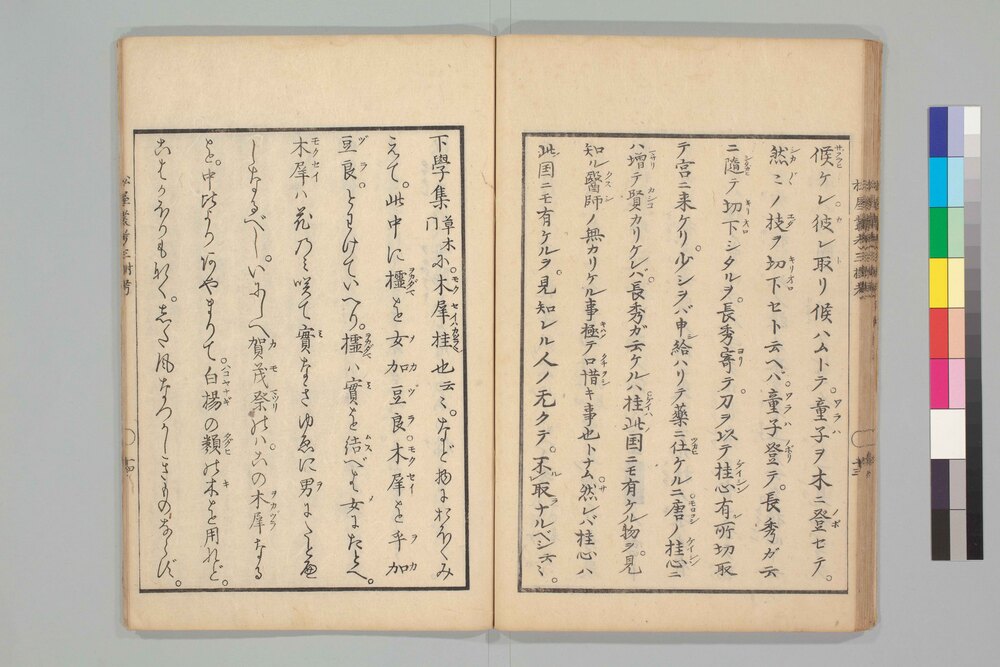 候ケレ彼レ取リ候ハムトテ。童子ヲ木ニ登セテ。
然々ノ技ヲ切下セト云ヘバ。童子登テ。長秀ガ云
ニ隨テ切下シタルヲ。長秀寄テ。刀ヲ以テ桂心有ル所切取
テ宮ニ来ケリ。少シヲバ申シ給ハリテ薬ニ仕ケルニ。唐ノ桂心ニ
ハ増テ賢カリケレバ。長秀ガ云ケルハ。桂此国ニモ有ケル物ヲ。見
知ル醫師ノ無カリケル事極テ口惜キ事也トナム。然レバ桂心ハ
此国ニモ有ケルヲ。見知レル人ノ无クテ。不取ナルベシ云々。
下學集草木門に。木犀桂也云々。など物におほくみ
えて。此中に櫃を女加豆良。木犀を乎加
豆良。とわけていへり。櫃ハ實を結べば女にたとへ。
木犀ハ花のミ咲て實なきゆゑに男にたとへ
しなるべし。いにしへ賀茂祭のハ。この木犀なる
を。中比よりあやまりて。白楊の類の木を用れど。
こはかをりも